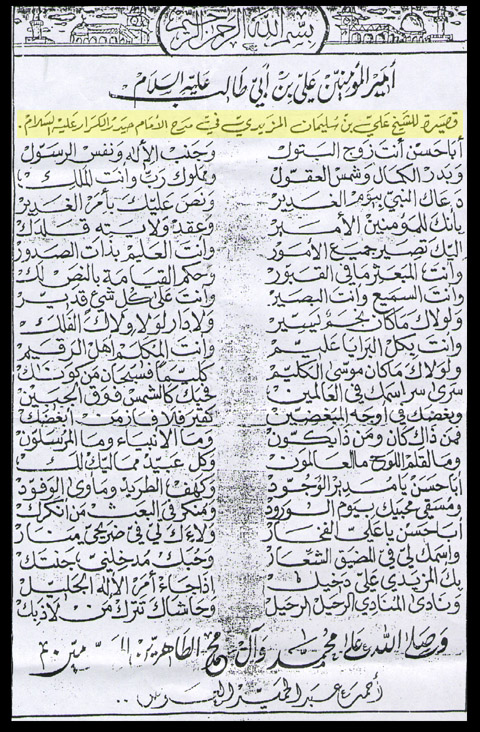 بسم الله الرحمن الرحيم
أمير المؤمنين علي بن أبي طالب عليه السلام
قصيدة للشيخ علي بن سليمان المزيدي في مدح الإمام حيدر الكرار عليه السلام.
أباحسن أنت زوج البتول وجنب الإله ونفس الرسول
وبدر الكمال وشمس العقول ومملوك رب وأنت الملك
دعاك النبي بيوم الغدير ونص عليك بأمر الغدير
بأنك للمؤمنين الأمير وعقد ولايته قلدك
اليك تصير جميع الأمور وأنت العليم بذات الصدور
وأنت المبعثر ما في القبور وحكم القيامة بالنص لك
وأنت السميع وأنت البصير وأنت على كل شئ قدير
ولولاك ماكان نجم يسير ولا دار لولا ولاك الفلك
وأنت بكل البرايا عليم وأنت المكلم أهل الرقيم
ولولاك ماكان موسى الكليم كليما فسبحان من كونك
سرى سر اسمك في العالمين فحبك كالشمس فوق الجبين
وبغضك في أوجه المبغضين كقير فلا فاز من أبغضك
فمن ذاك كان ومن ذا يكون وما الأنبياء وما المرسلون
وما القلم اللوح ما العالمون وكل عبيد مماليك لك
أبا حسن يا مدير الوجود وكهف الطريد ومأوى الوفود
ومسقي محبيك يوم الورود ومنكر في البعث من أنكرك
أبا حسن يا علي الفخار ولاءك لي في ضريحي منار
واسمك لي في المضيق الشعار وحبك مدخلي جنتك
بك المزيدي علي دخيل إذا جاء أمر الإله الجليل
ونادى المنادي الرحيل الرحيل وحاشاك تترك من لاذ بك
وصلى الله على محمد وآل محمد الطاهرين
أحمد عبد الحميد